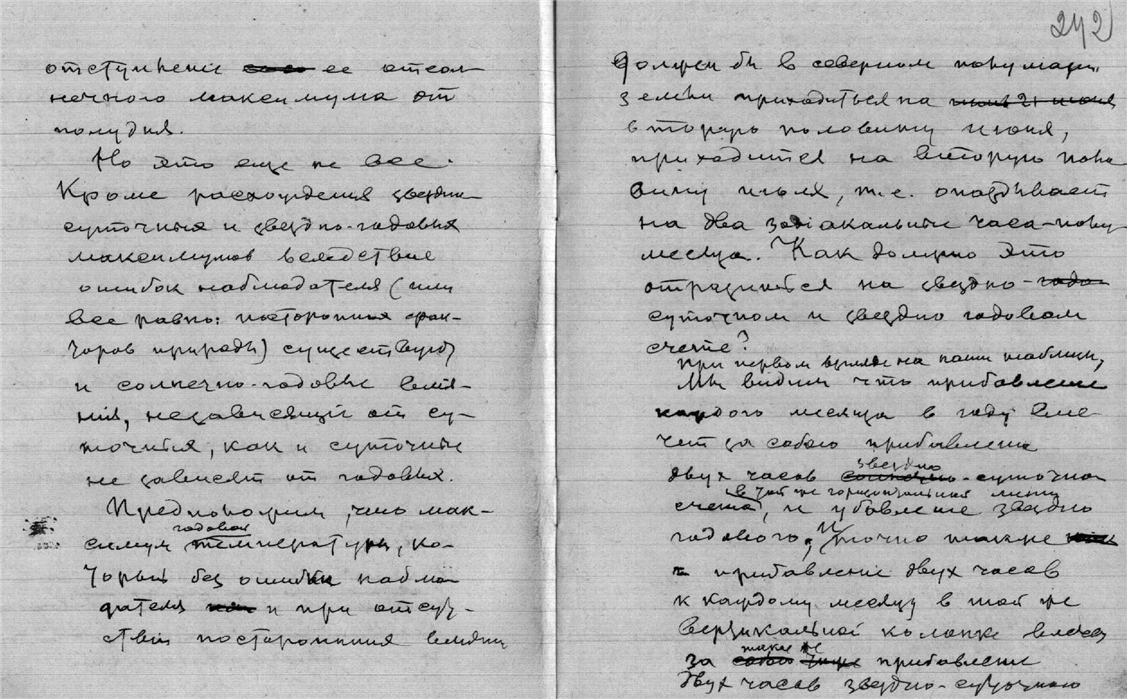 отступленiе ее отсол-
нечного максимума от
полудня.
Но это еще не все.
Кроме расхождения звездно
суточных и звездно-годовых
максимумов вследствие
ошибок наблюдателя (или
все равно: посторонних фак-
торов природы) существуют
и солнечно-годовые влия-
нiя, независящiе от су-
точных, как и суточные
не зависят от годовых.
Предположим, что мак-
симум годовой температуры, ко-
торый без ошибки наблю
дателя и при отсут-
ствiи постороннния влиянiй
242
должен бы в северном полушарiи
земли приходиться на
вторую половину июня,
приходится на вторую поло
вину июля, т.е. опаздывает
на два зодiакальных часа-полу
месяца. Как должно это
отразиться на звездно-
суточном и звездно годовом
счете?
При первом взгляде на наши таблицы,
мы видим что прибавленiе
каждого месяца в году вле
чет за собою прибавленiе
двух часов звездно-суточнаго
счета, в той же горизонтальной линiи и убавленiе звездно
годового, И точно также
прибавленiе двух часов
к каждому месяцу в той же
вертикальной колонке влечет
за такое же прибавленiе
двух часов звездно-суточного